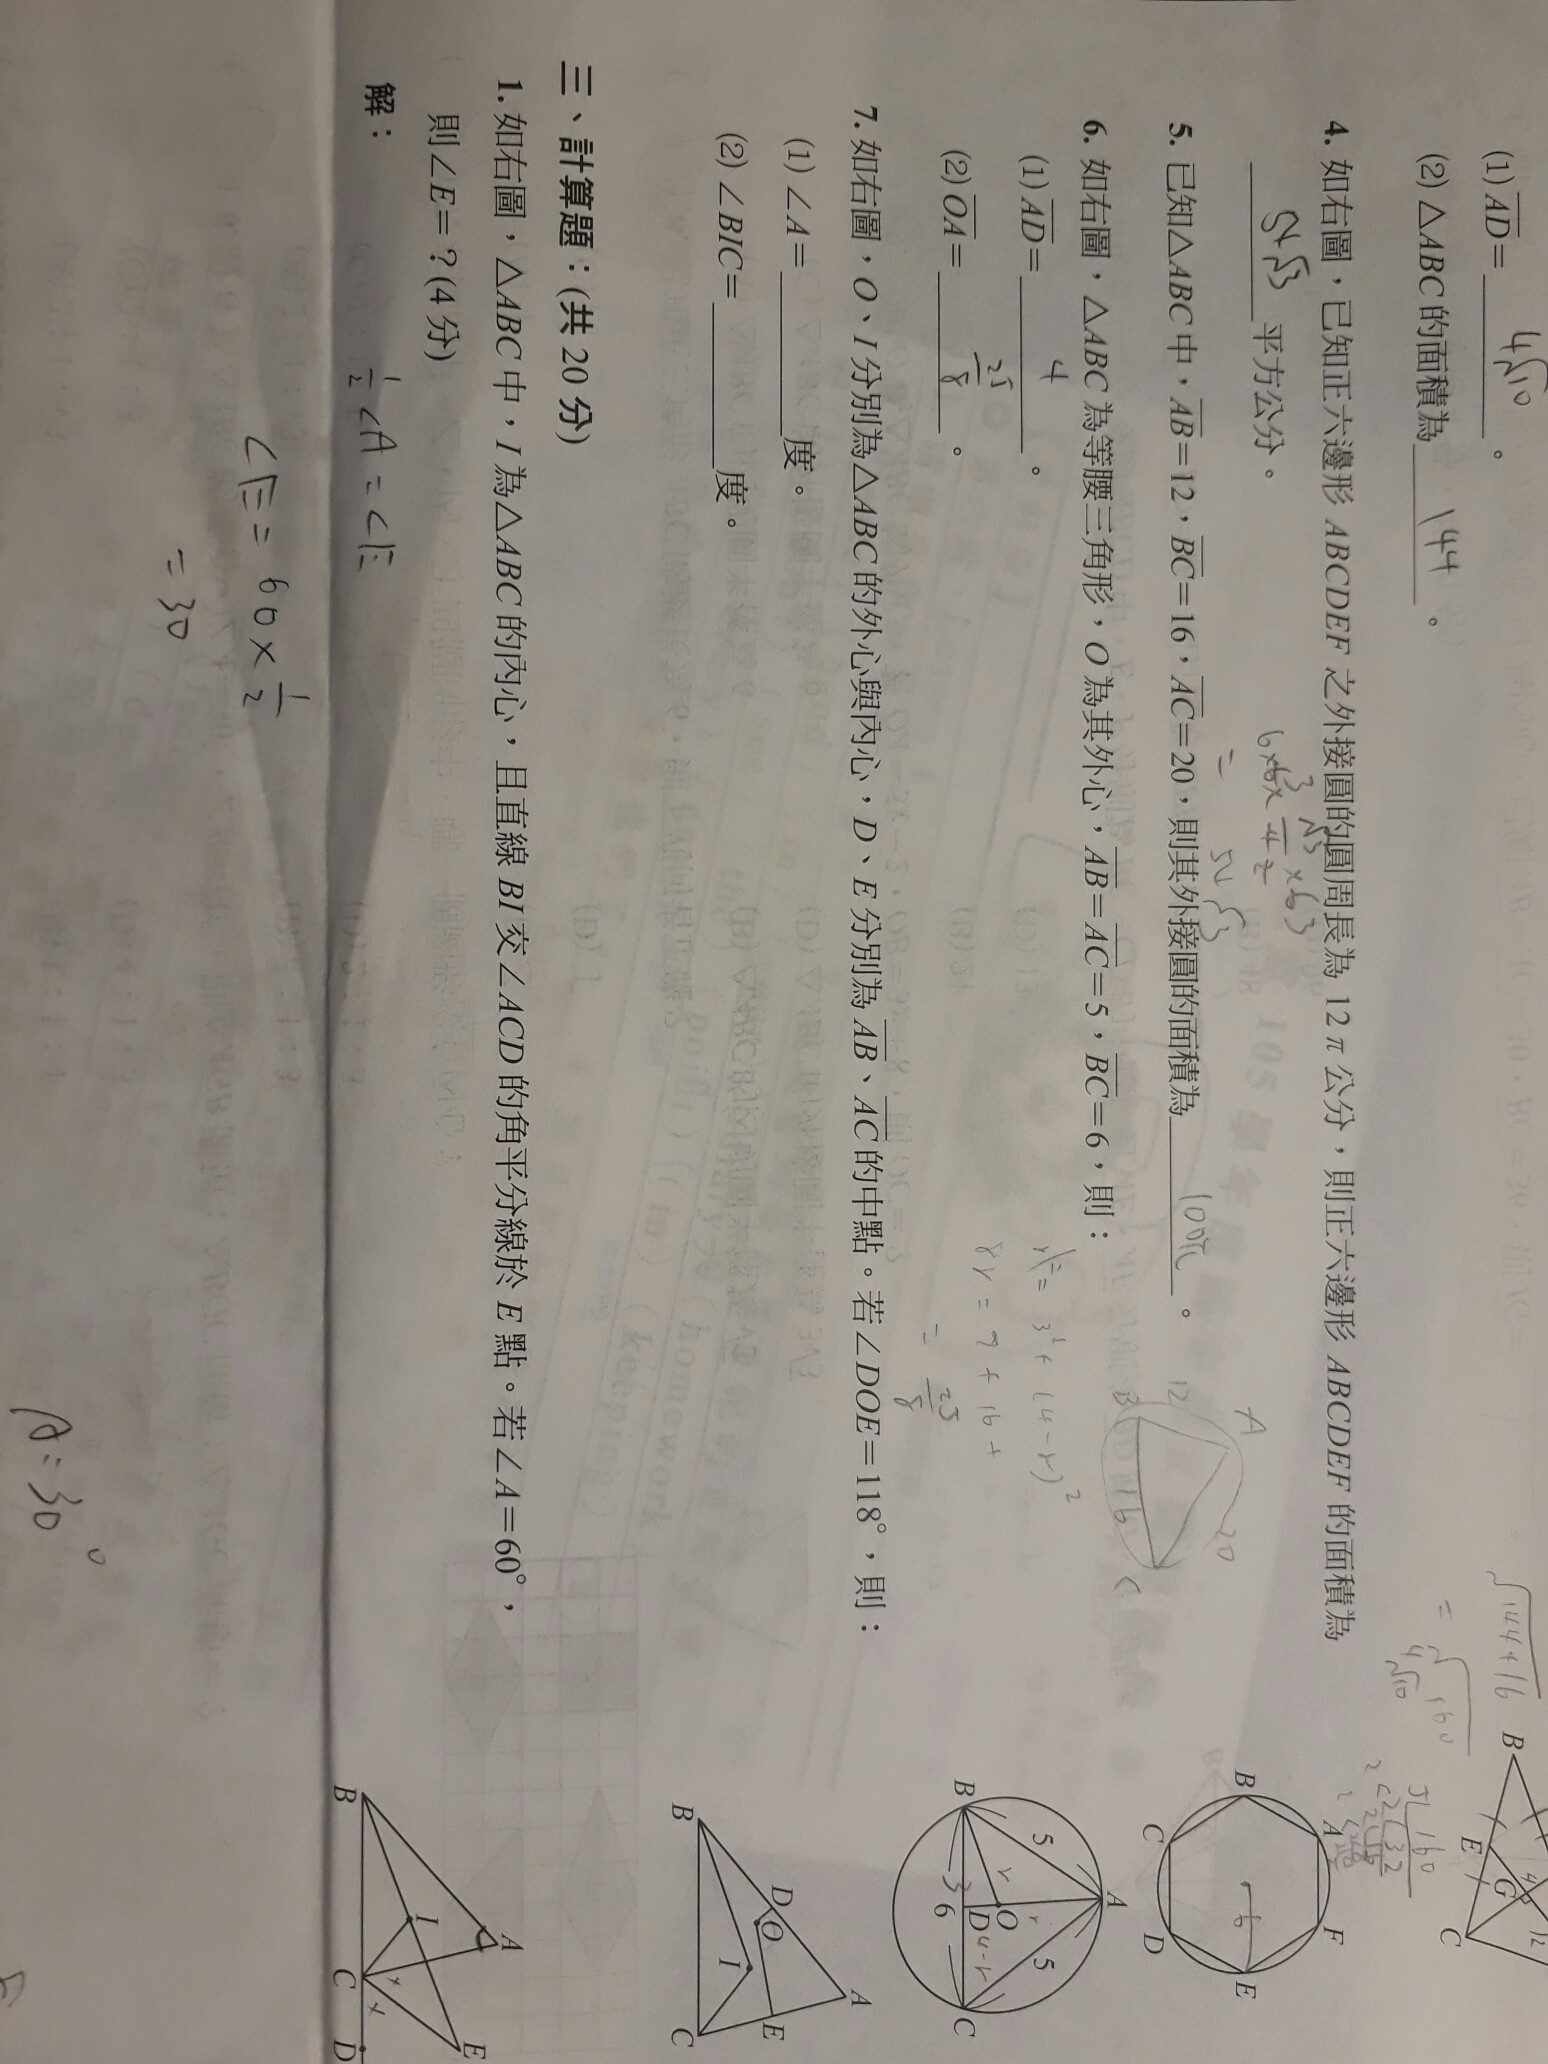 (1) AD= 4√10 。
(2) △ABC的面積為 144 。
4. 如右圖,已知正六邊形 ABCDEF 之外接圓的圓周長為 12π公分,則正六邊形 ABCDEF 的面積為
54√3 平方公分。
5. 已知△ABC中,AB=12,BC=16,AC=20,則其外接圓的面積為 100π 。
6. 如右圖,△ABC為等腰三角形,O為其外心,AB=AC=5,BC=6,則:
(1) AD= 4 。
(2) OA= 25/8 。
7. 如右圖,O、I分別為△ABC的外心與內心,D、E分別為AB、AC的中點。若∠DOE=118°,則:
(1) ∠A= 度。
(2) ∠BIC= 度。
三、計算題:(共 20 分)
1. 如右圖,△ABC中,I為△ABC的內心,且直線BI交∠ACD的角平分線於E點。若∠A=60°,
則∠E=?(4分)
解:
1/2 ∠A = ∠E
∠E = 60 × 1/2
= 30
A: 30°
√144+16
= √160
4√10
= 54√3
r² = 3² + (4-r)²
8r = 9 + 16 +
= 25/8
A
12
20
B
16
C
B
E
G
4
C
12
A
B
F
6
C
E
D
A
5
5
r
r
O
B
D
4-r
C
3
6
A
D
O
E
I
B
C
A
E
I
x
x
B
C
D